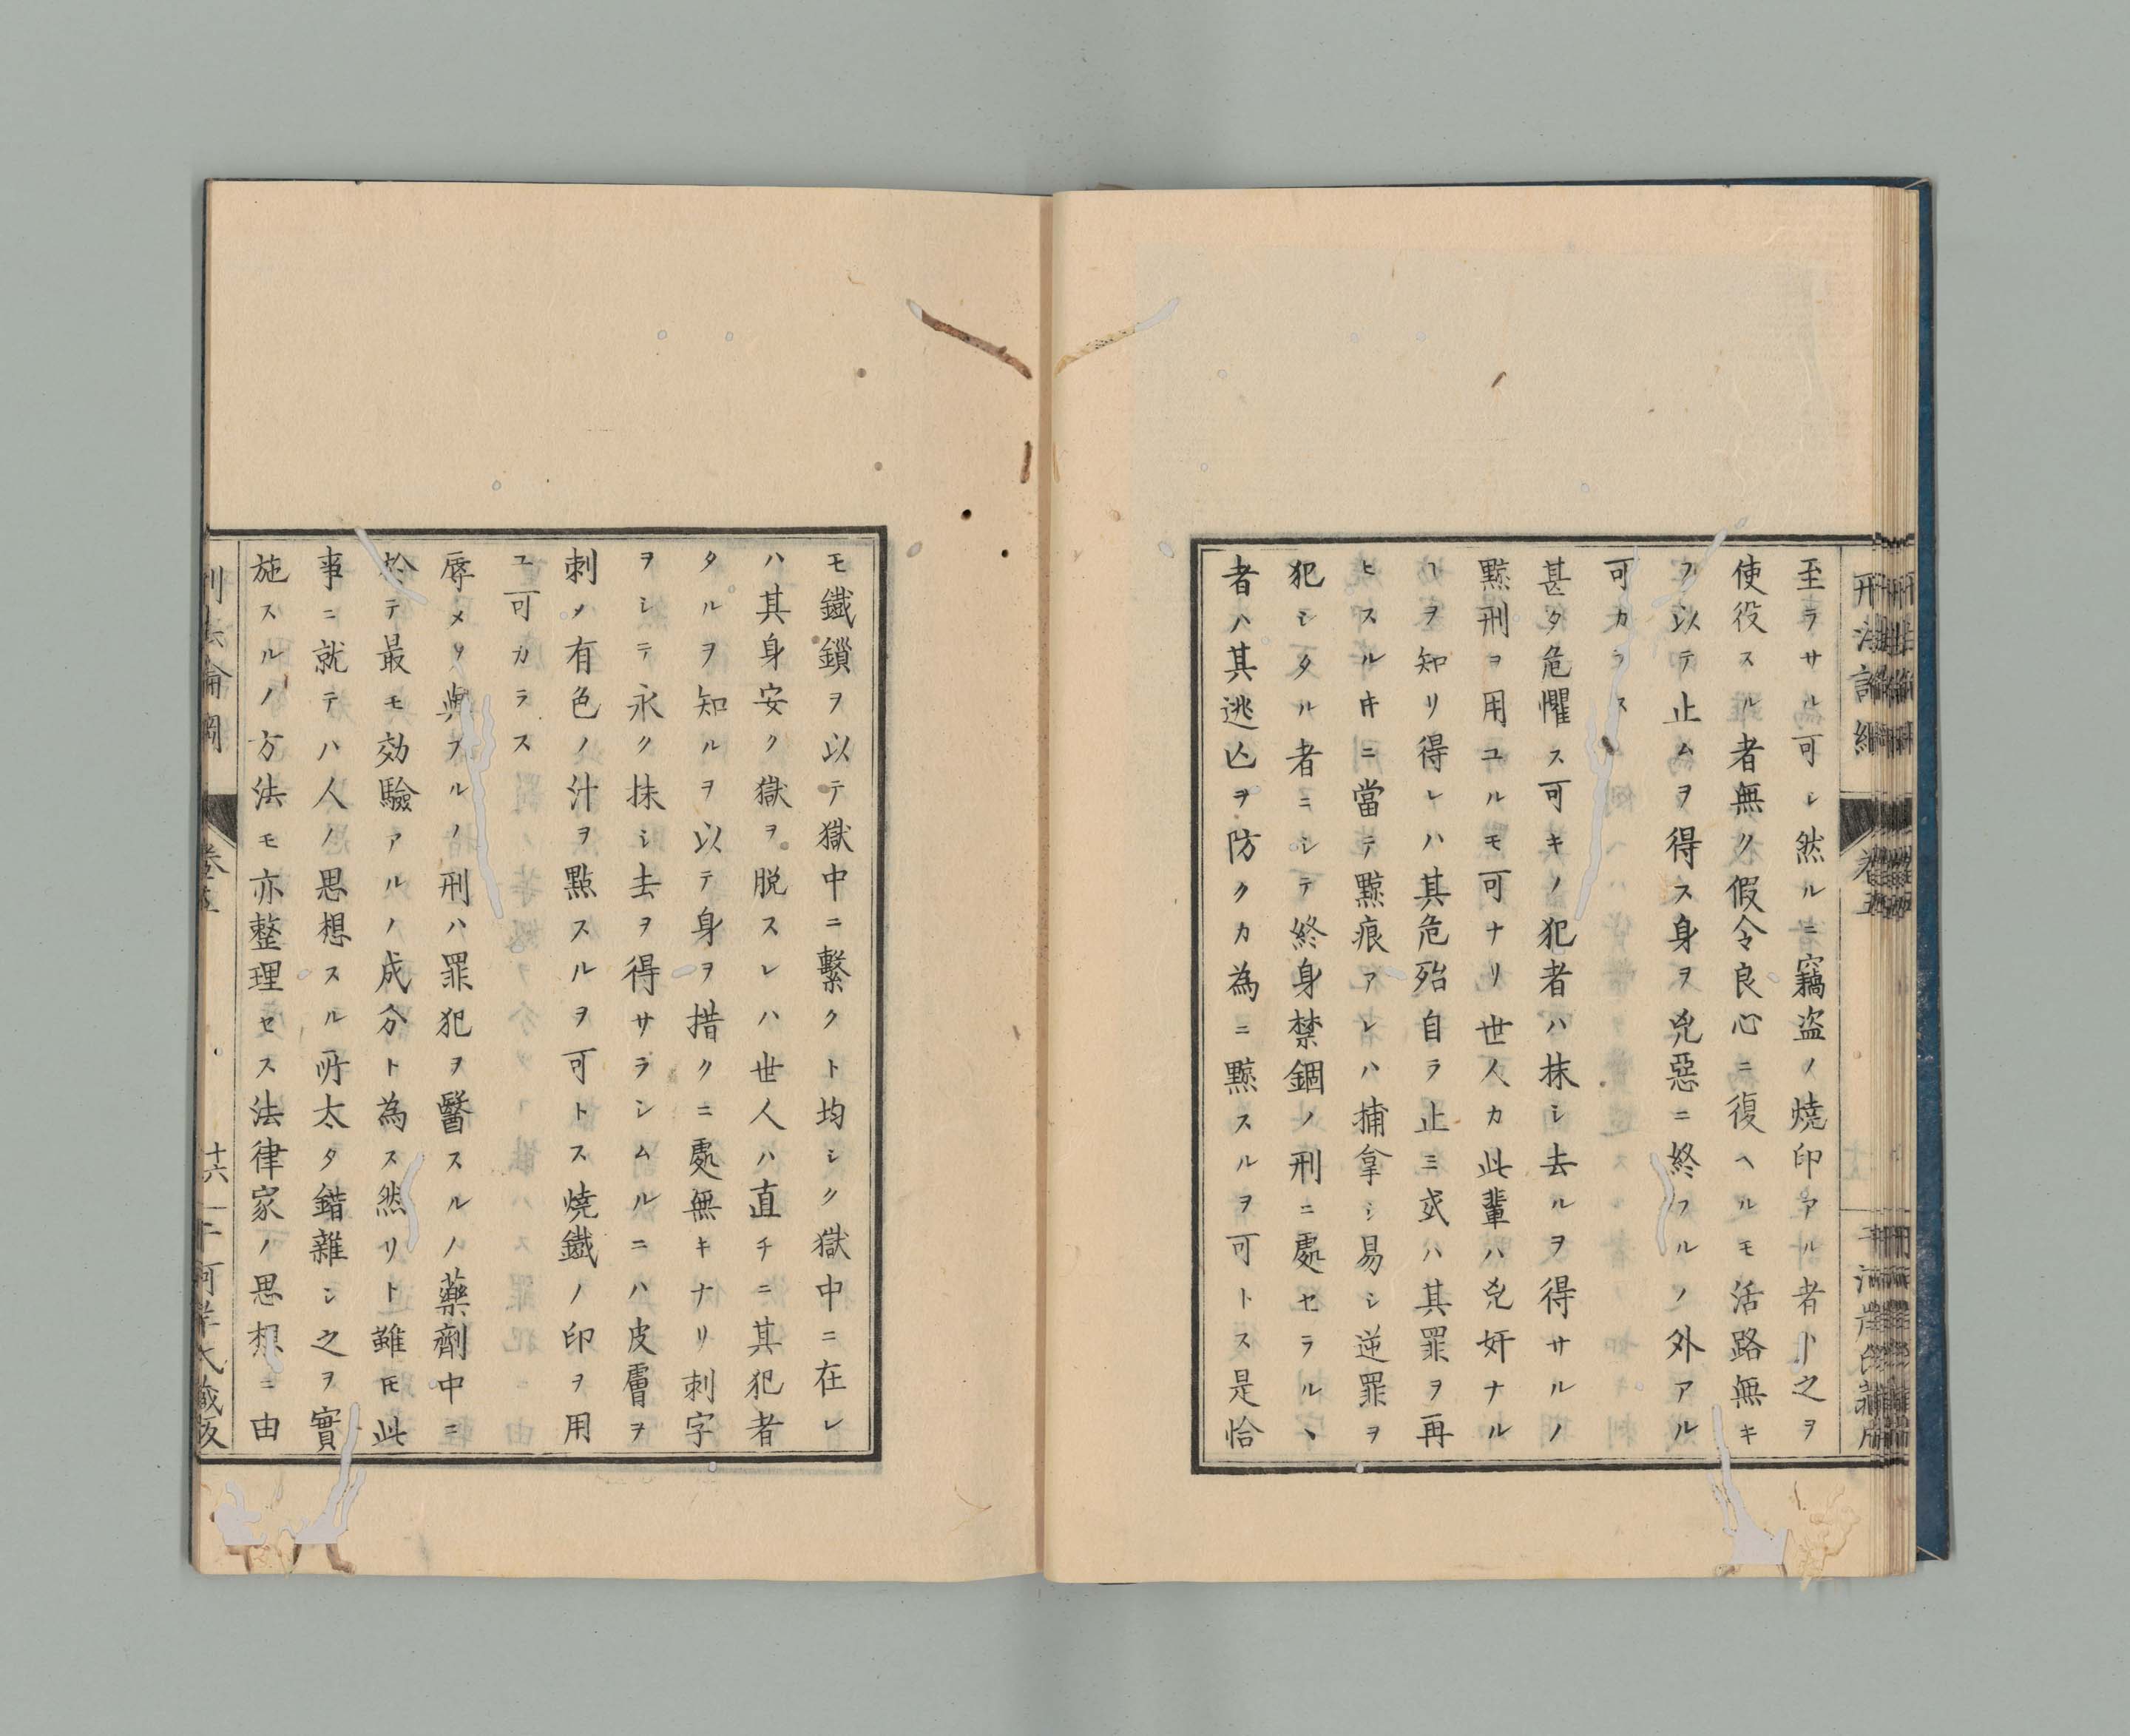 至ラサル可シ然ルニ竊盗ノ燒印アル者ト之ヲ
使役スル者無ク假令良心ニ復ヘルモ活路無キ
ヲ以テ止ムヲ得ス身ヲ兇惡ニ終フルノ外アル
可カラス
甚タ危懼ス可キノ犯者ハ抹シ去ルヲ得サルノ
黥刑ヲ用ユルモ可ナリ世人カ此輩ハ兇奸ナル
ヿヲ知リ得レハ其危殆自ラ止ミ或ハ其罪ヲ再
ヒスル𪜈ニ當テ黥痕アレハ捕拿シ易シ逆罪ヲ
犯シタル者ニシテ終身禁錮ノ刑ニ處セラルヽ
者ハ其逃亾ヲ防クカ為ニ黥スルヲ可トス是恰
モ鐵鎖ヲ以テ獄中ニ繫クト均シク獄中ニ在レ
ハ其身安ク獄ヲ脱スレハ世人ハ直チニ其犯者
タルヲ知ルヲ以テ身ヲ措クニ處無キナリ刺字
ヲシテ永ク抹シ去ヲ得サラシムルニハ皮膚ヲ
刺メ有色ノ汁ヲ點スルヲ可トス燒鐵ノ印ヲ用
ユ可カラス
辱メヲ與フルノ刑ハ罪犯ヲ醫スルノ藥劑中ニ
於テ最モ効驗アルノ成分ト為ス然リト雖モ此
事ニ就テハ人ノ思想スル所太タ錯雜シ之ヲ實
施スルノ方法モ亦整理セス法律家ノ思想ニ由
刑法論綱 卷五 十六 何禮之藏版